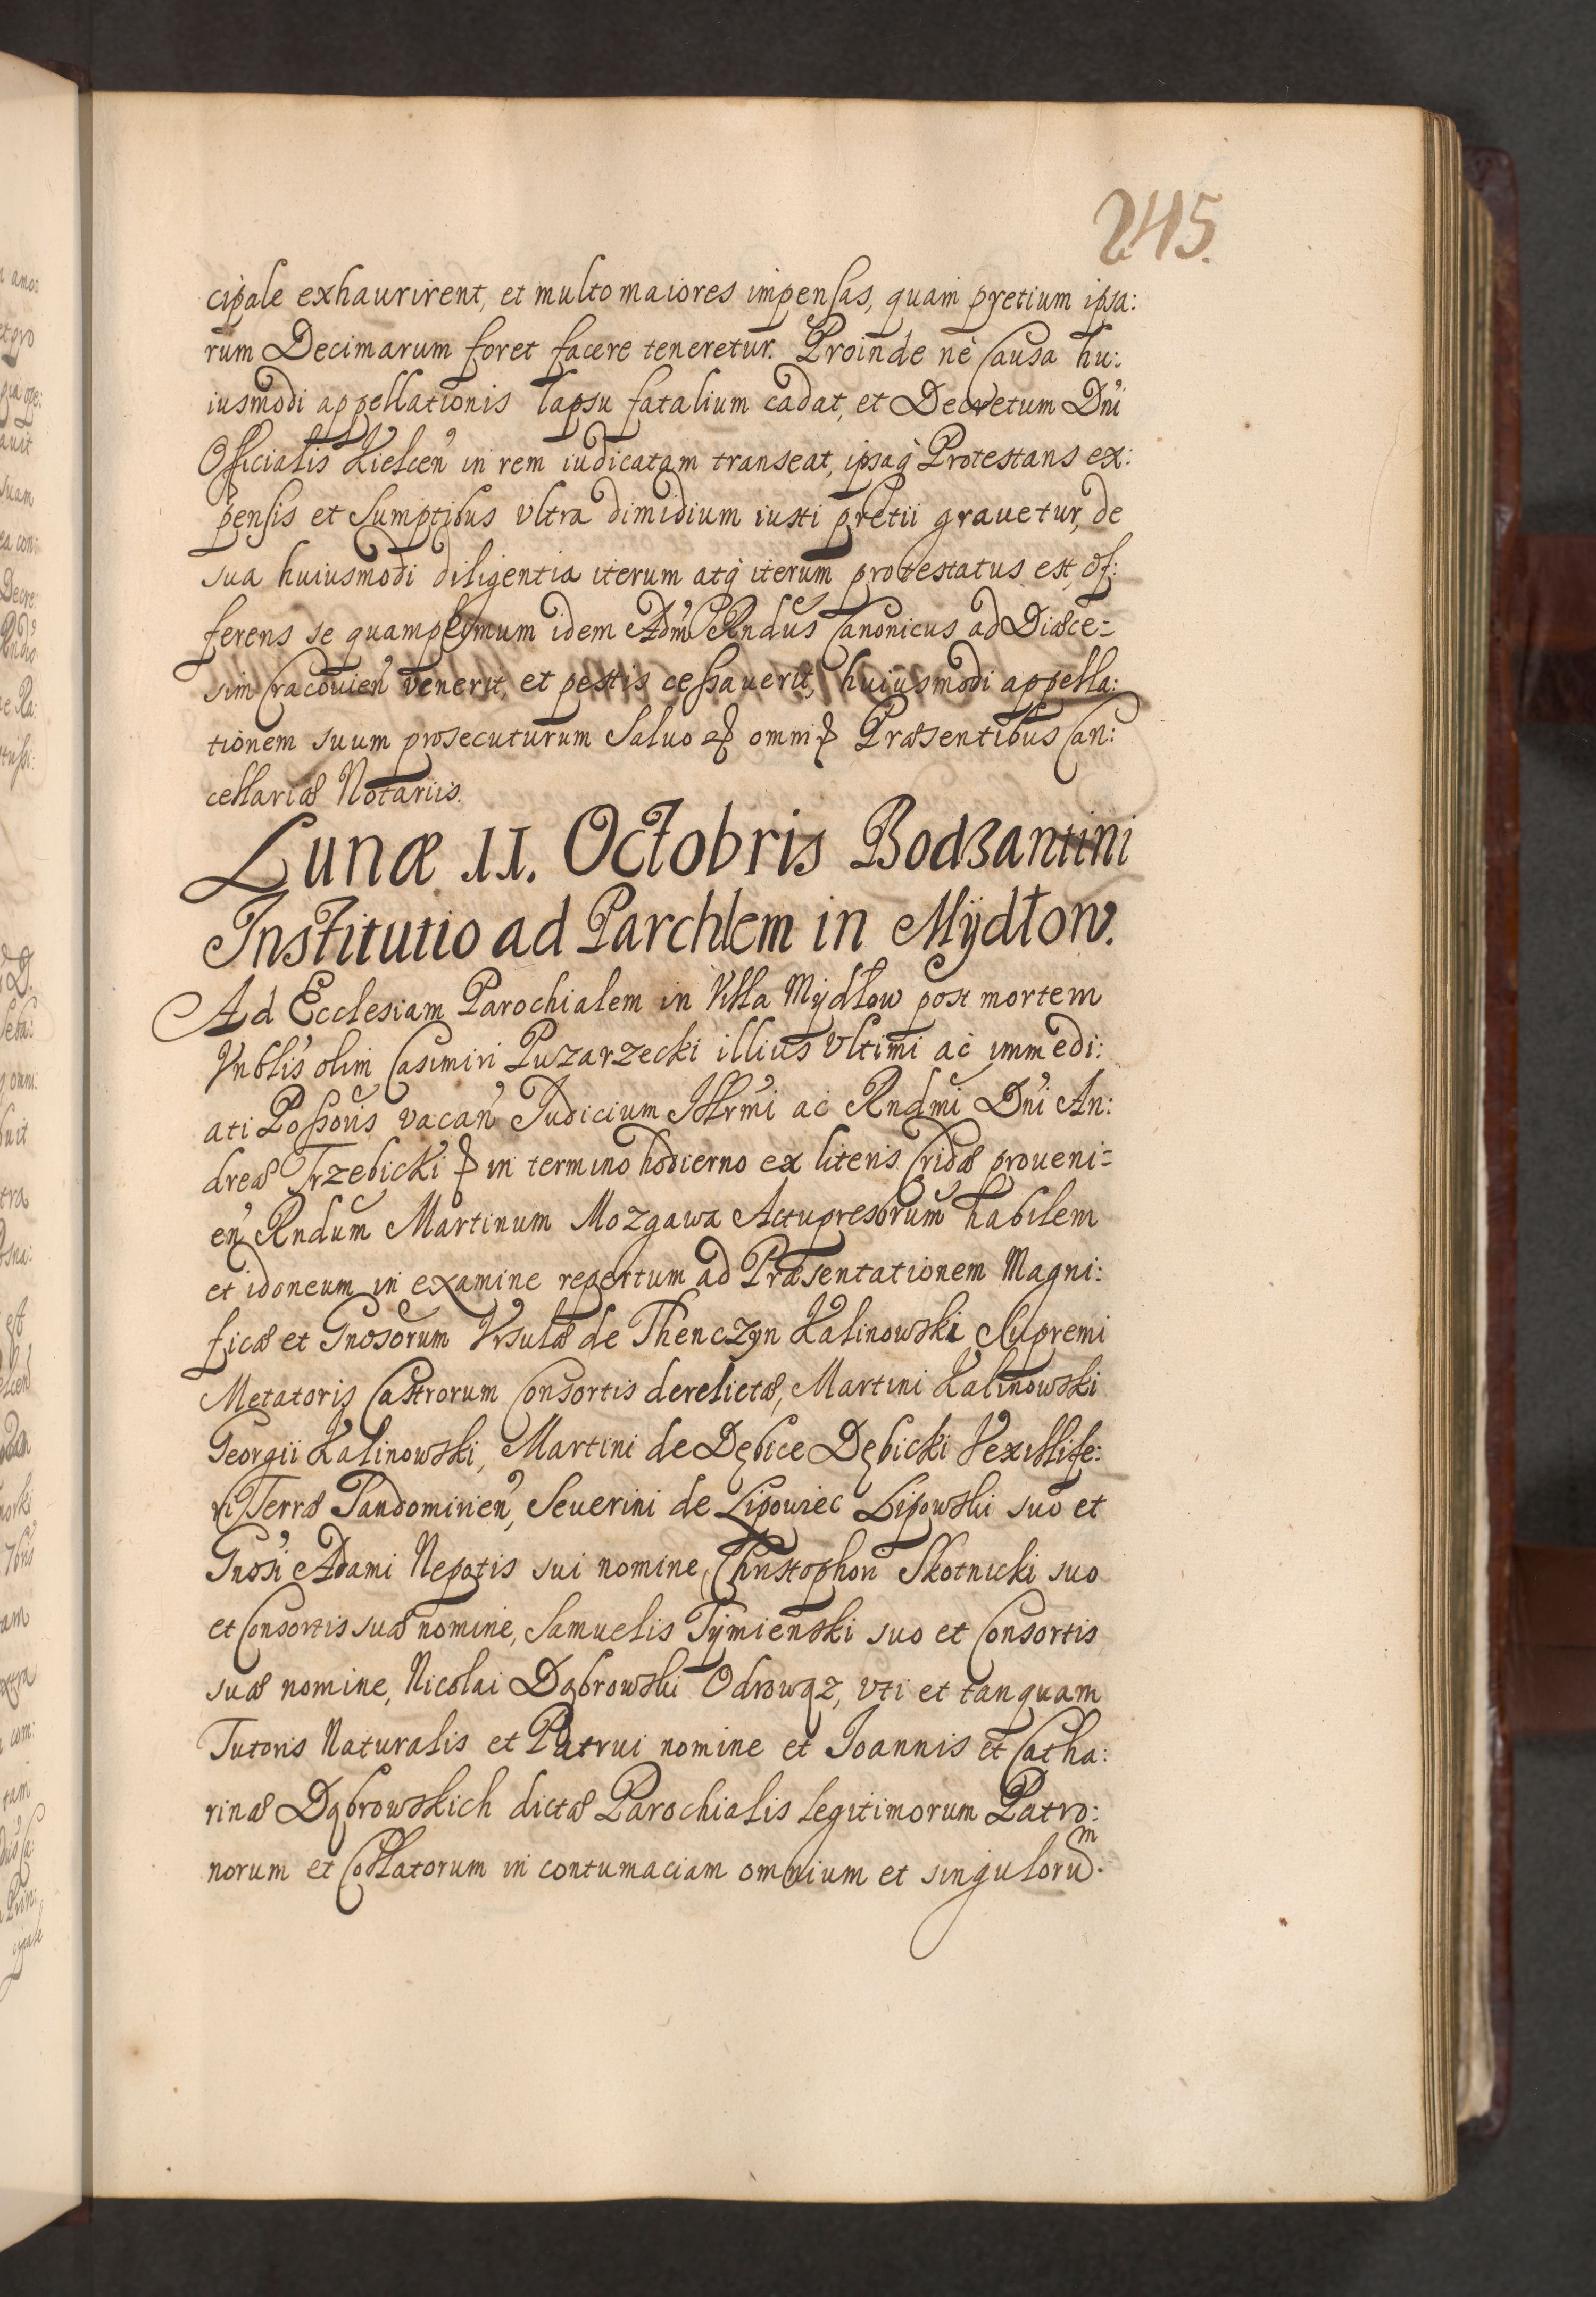 245.
cipale exhaurirent, et multo maiores impensas, quam pretium ipsa:
rum Decimarum foret facere teneretur. Proinde nè Causa hu:
iusmodi appellationis lapsu fatalium cadat, et Decretum Dni
Officialis Kielcen in rem iudicatam transeat, ipsaq Protestans ex:
pensis et Sumptibus vltra dimidium iusti pretii grauetur, de
sua huiusmodi diligentia iterum atq iterum protestatus est, of:
ferens se quamprimum idem Adm Rndus Canonicus ad Diæce=
sim Cracouien venerit, et pestis cessauerit, huiusmodi appella:
tionem suum prosecuturum Saluo omni Præsentibus Can:
cellariæ Notariis.
Lunæ 11. Octobris Bodzantini
Institutio ad Parchlem in Mÿdłow.
Ad Ecclesiam Parochialem in Villa Mÿdłow post mortem
Vnblis olim Casimiri Puzarzecki illius Vltimi ac immedi:
ati Possoris vacan Judicium Illrmi ac Rndmi Dni An:
dreæ Trzebicki in termino hodierno ex literis Cridæ proueni=
en Rndum Martinum Mozgawa Actupresbrum habilem
et idoneum in examine repertum ad Præsentationem Magni:
ficæ et Gnosorum Vrsulæ de Thenczyn Kalinowski Supremi
Metatoris Castrorum Consortis derelictæ, Martini Kalinowski
Georgii Kalinowski, Martini de Dębice Dębicki Vexillife:
ri Terræ Sandomirien, Seuerini de Lipowiec Lipowski suo et
Gnosi Adami Nepotis sui nomine, Christophori Skotnicki suo
et Consortis suæ nomine, Samuelis Tÿmienski suo et Consortis
suæ nomine, Nicolai Dąbrowski Odrowąz, vti et tanquam
Tutoris Naturalis et Patrui nomine et Joannis et Catha:
rinæ Dąbrowskich dictæ Parochialis legitimorum Patro:
norum et Collatorum in contumaciam omnium et singulorum.